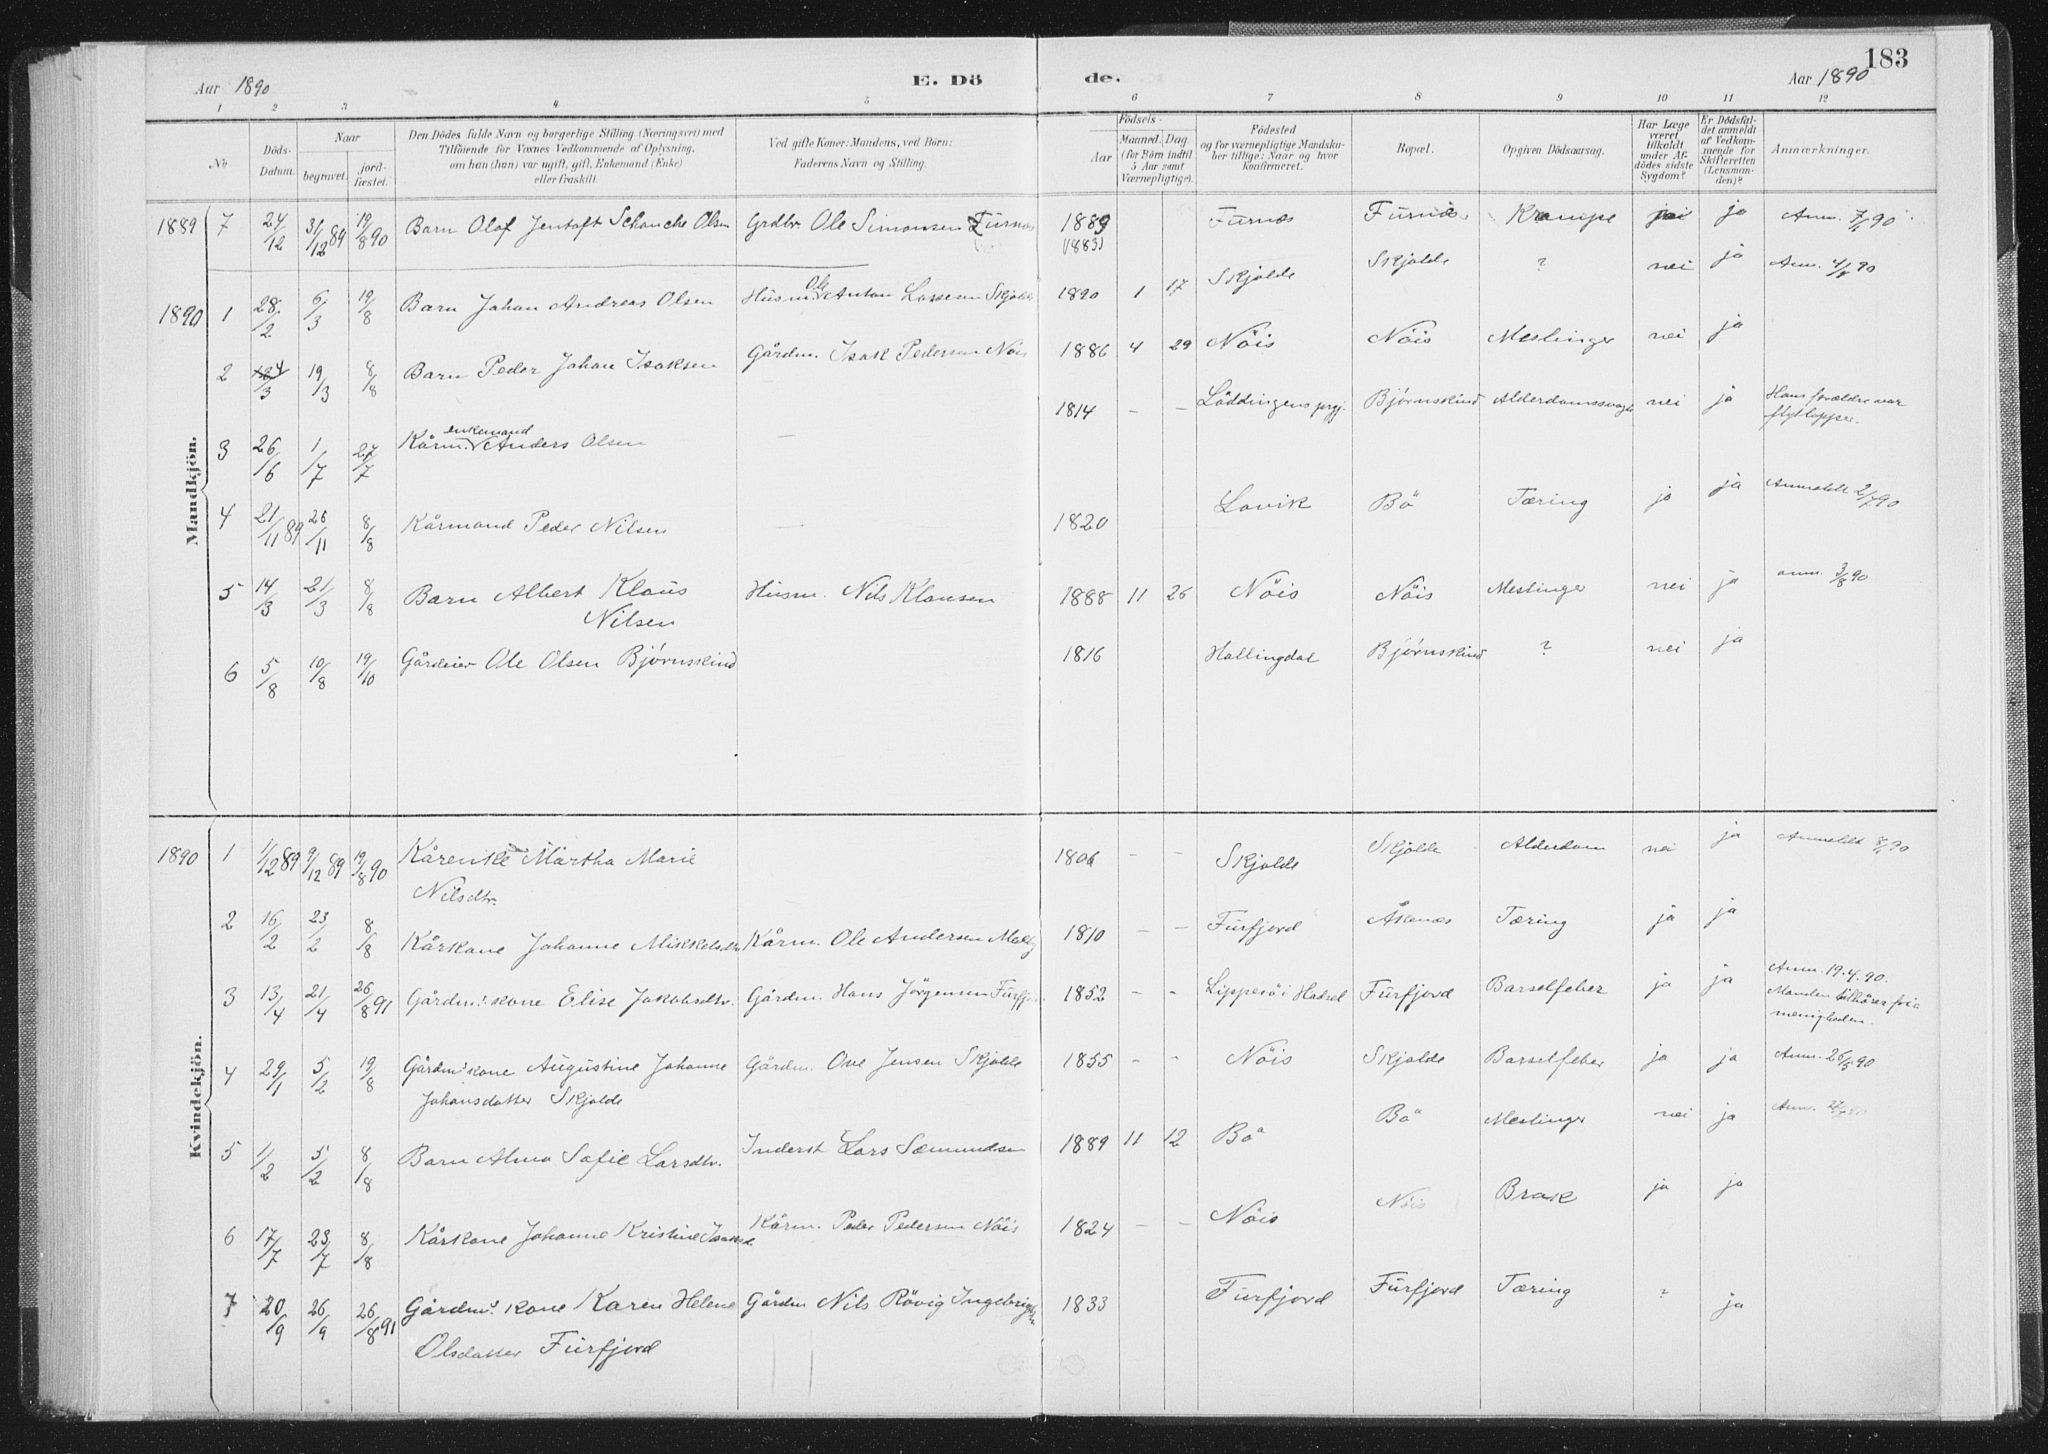 183
Aar 1890 E. Dö de. Aar 1890
1 2 3 4 5 6 7 8 9 10 11 12
No
Döds-Datum.
Naar
begravet.
jord-fæstet.
Den Dödes fulde Navn og borgerlige Stilling (Næringsvei) med
Tilföiende for Voxnes Vedkommende af Oplysning,
om han (hun) var ugift, gift, Enkemand (Enke)
eller fraskilt.
Ved gifte Koner: Mandens, ved Börn:
Faderens Navn og Stilling.
Födsels-
Aar
Maaned. Dag.
(for Börn indtil
5 Aar samt
Værnepligtige).
Födested
og for værnepligtige Mandsku-
ber tillige: Naar og hvor
konfirmeret.
Bopæl.
Opgiven Dödsaarsag.
Har Læge
været
tilkaldt
under Af-
dödes sidste
Sygdom?
Er Dödsfal-
det anmeldt
af Vedkom-
mende for
Skifteretten
(Lensman-
den)?
Anmærkninger.
Mandkjön.
1889 7 24/12 31/12 89 19/8 90 Barn Olaf Jentoft Schanche Olsen Grdbr Ole Simonsen Furnæs 1889 (1883) Furnæs Furnæs Krampe nei ja Anm. 7/1 90
1890 1 28/2 6/3 19/8 Barn Johan Andreas Olsen Husm Ole Anton Larsen Skjolde 1890 1 17 Skjolde Skjolde ? nei ja Anm. 90
2 24/3 19/3 8/8 Barn Peder Johan Isaksen Gårdm. Isak Pedersen Nöis 1886 4 29 Nöis Nöis Meslinger nei ja
3 26/6 1/7 27/7 Kårm. enkemand Anders Olsen — 1814 - - Löddingens prgj. Bjørnskind Alderdomssvaghed nei ja Hans forældre var
flytlapper.
4 21/11 89 26/11 8/8 Kårmand Peder Nilsen — 1820 Lovik Bö Tæring ja ja Anmeldt 2/7 90
5 14/3 21/3 8/8 Barn Albert Klaus
Nilsen Husm. Nils Klausen 1888 11 26 Nöis Nöis Meslinger nei ja anm. 3/8 90
6 5/8 10/8 19/10 Gårdeier Ole Olsen Bjørnskind 1816 Hallingdal Bjørnskind ? nei ja
Kvindekjön.
1890 1 1/12 89 9/12 89 19/8 90 Kårenke Martha Marie
Nilsdtr. 1806 - - Skjolde Skjolde Alderdom nei ja Anmeldt 8/1 90
2 16/2 23/2 8/8 Kårkone Johanne Mikkelsdtr Kårm. Ole Andersen 1810 - - Furfjord Åknæs Tæring ja ja
3 13/4 21/4 26/8 91 Gårdm.s kone Elise Jakobsdtr. Gårdm. Hans Jörgensen Furfjor 1852 - - Lippesö i Hadsel Furfjord Barselfeber ja ja Anm. 19.4.90.
Manden tilhörer fri=
menigheden.
4 29/1 5/2 19/8 Gårdm.s kone Augustine Johanne
Johansdatter Skjolde Gårdm. Ove Jensen Skjolde 1855 - - Nöis Skjolde Barselfeber ja ja Anm. 90
5 1/2 5/2 8/8 Barn Alma Sofie Larsdtr. Inderst Lars Sæmundsen 1889 11 12 Bö Bö Meslinger nei ja Anm. 90
6 17/7 23/7 8/8 Kårkone Johanne Kristine Isaksd Kårm. Peder Pedersen Nöis 1824 - - Nöis Nöis Brok ja ja
7 20/9 26/9 26/8 91 Gårdm.s kone Karen Helene
Olsdatter Furfjord Gårdm Nils Rövig Ingebrigts 1833 Furfjord Furfjord Tæring ? ja